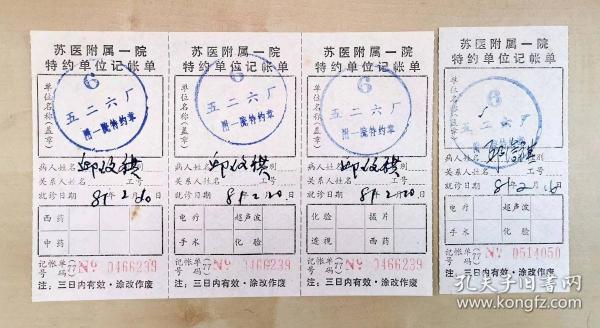 苏医附属一院
特约单位记帐单
单位名称(盖章)
6
五二六厂
附一院特约章
病人姓名 别
关系人姓名 工号
就诊日期 81年2月20日
西药
中药
记帐单号码(77) № 0466239
注：三日内有效·涂改作废
苏医附属一院
特约单位记帐单
单位名称(盖章)
6
五二六厂
附一院特约章
病人姓名 别
关系人姓名 工号
就诊日期 81年2月20日
电疗 超声波
手术 化验
记帐单号码(77) № 0466239
注：三日内有效·涂改作废
苏医附属一院
特约单位记帐单
单位名称(盖章)
6
五二六厂
附一院特约章
病人姓名 别
关系人姓名 工号
就诊日期 81年2月20日
化验 摄片
透视 西药
记帐单号码(77) № 0466239
注：三日内有效·涂改作废
苏医附属一院
特约单位记帐单
单位名称(盖章)
6
五二六厂
附一院特约章
病人姓名 别
关系人姓名 工号
就诊日期 81年2月 日
电疗 超声波
手术 化验
记帐单号码(77) № 0514050
注：三日内有效·涂改作废
孔夫子旧书网
www.kongfz.com